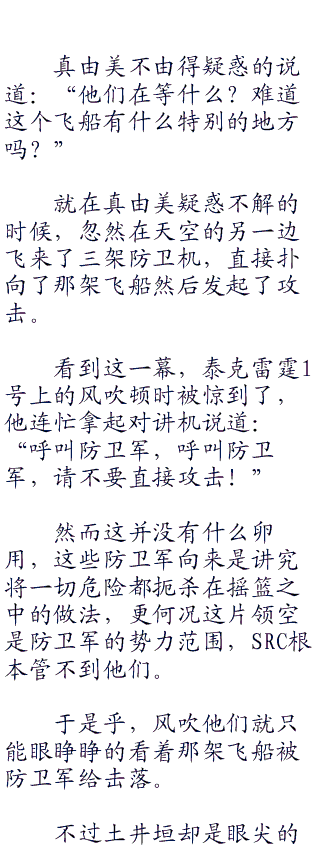 真由美不由得疑惑的说
道：“他们在等什么？难道
这个飞船有什么特别的地方
吗？”
就在真由美疑惑不解的
时候，忽然在天空的另一边
飞来了三架防卫机，直接扑
向了那架飞船然后发起了攻
击。
看到这一幕，泰克雷霆1
号上的风吹顿时被惊到了，
他连忙拿起对讲机说道：
“呼叫防卫军，呼叫防卫
军，请不要直接攻击！”
然而这并没有什么卵
用，这些防卫军向来是讲究
将一切危险都扼杀在摇篮之
中的做法，更何况这片领空
是防卫军的势力范围，SRC根
本管不到他们。
于是乎，风吹他们就只
能眼睁睁的看着那架飞船被
防卫军给击落。
不过土井垣却是眼尖的